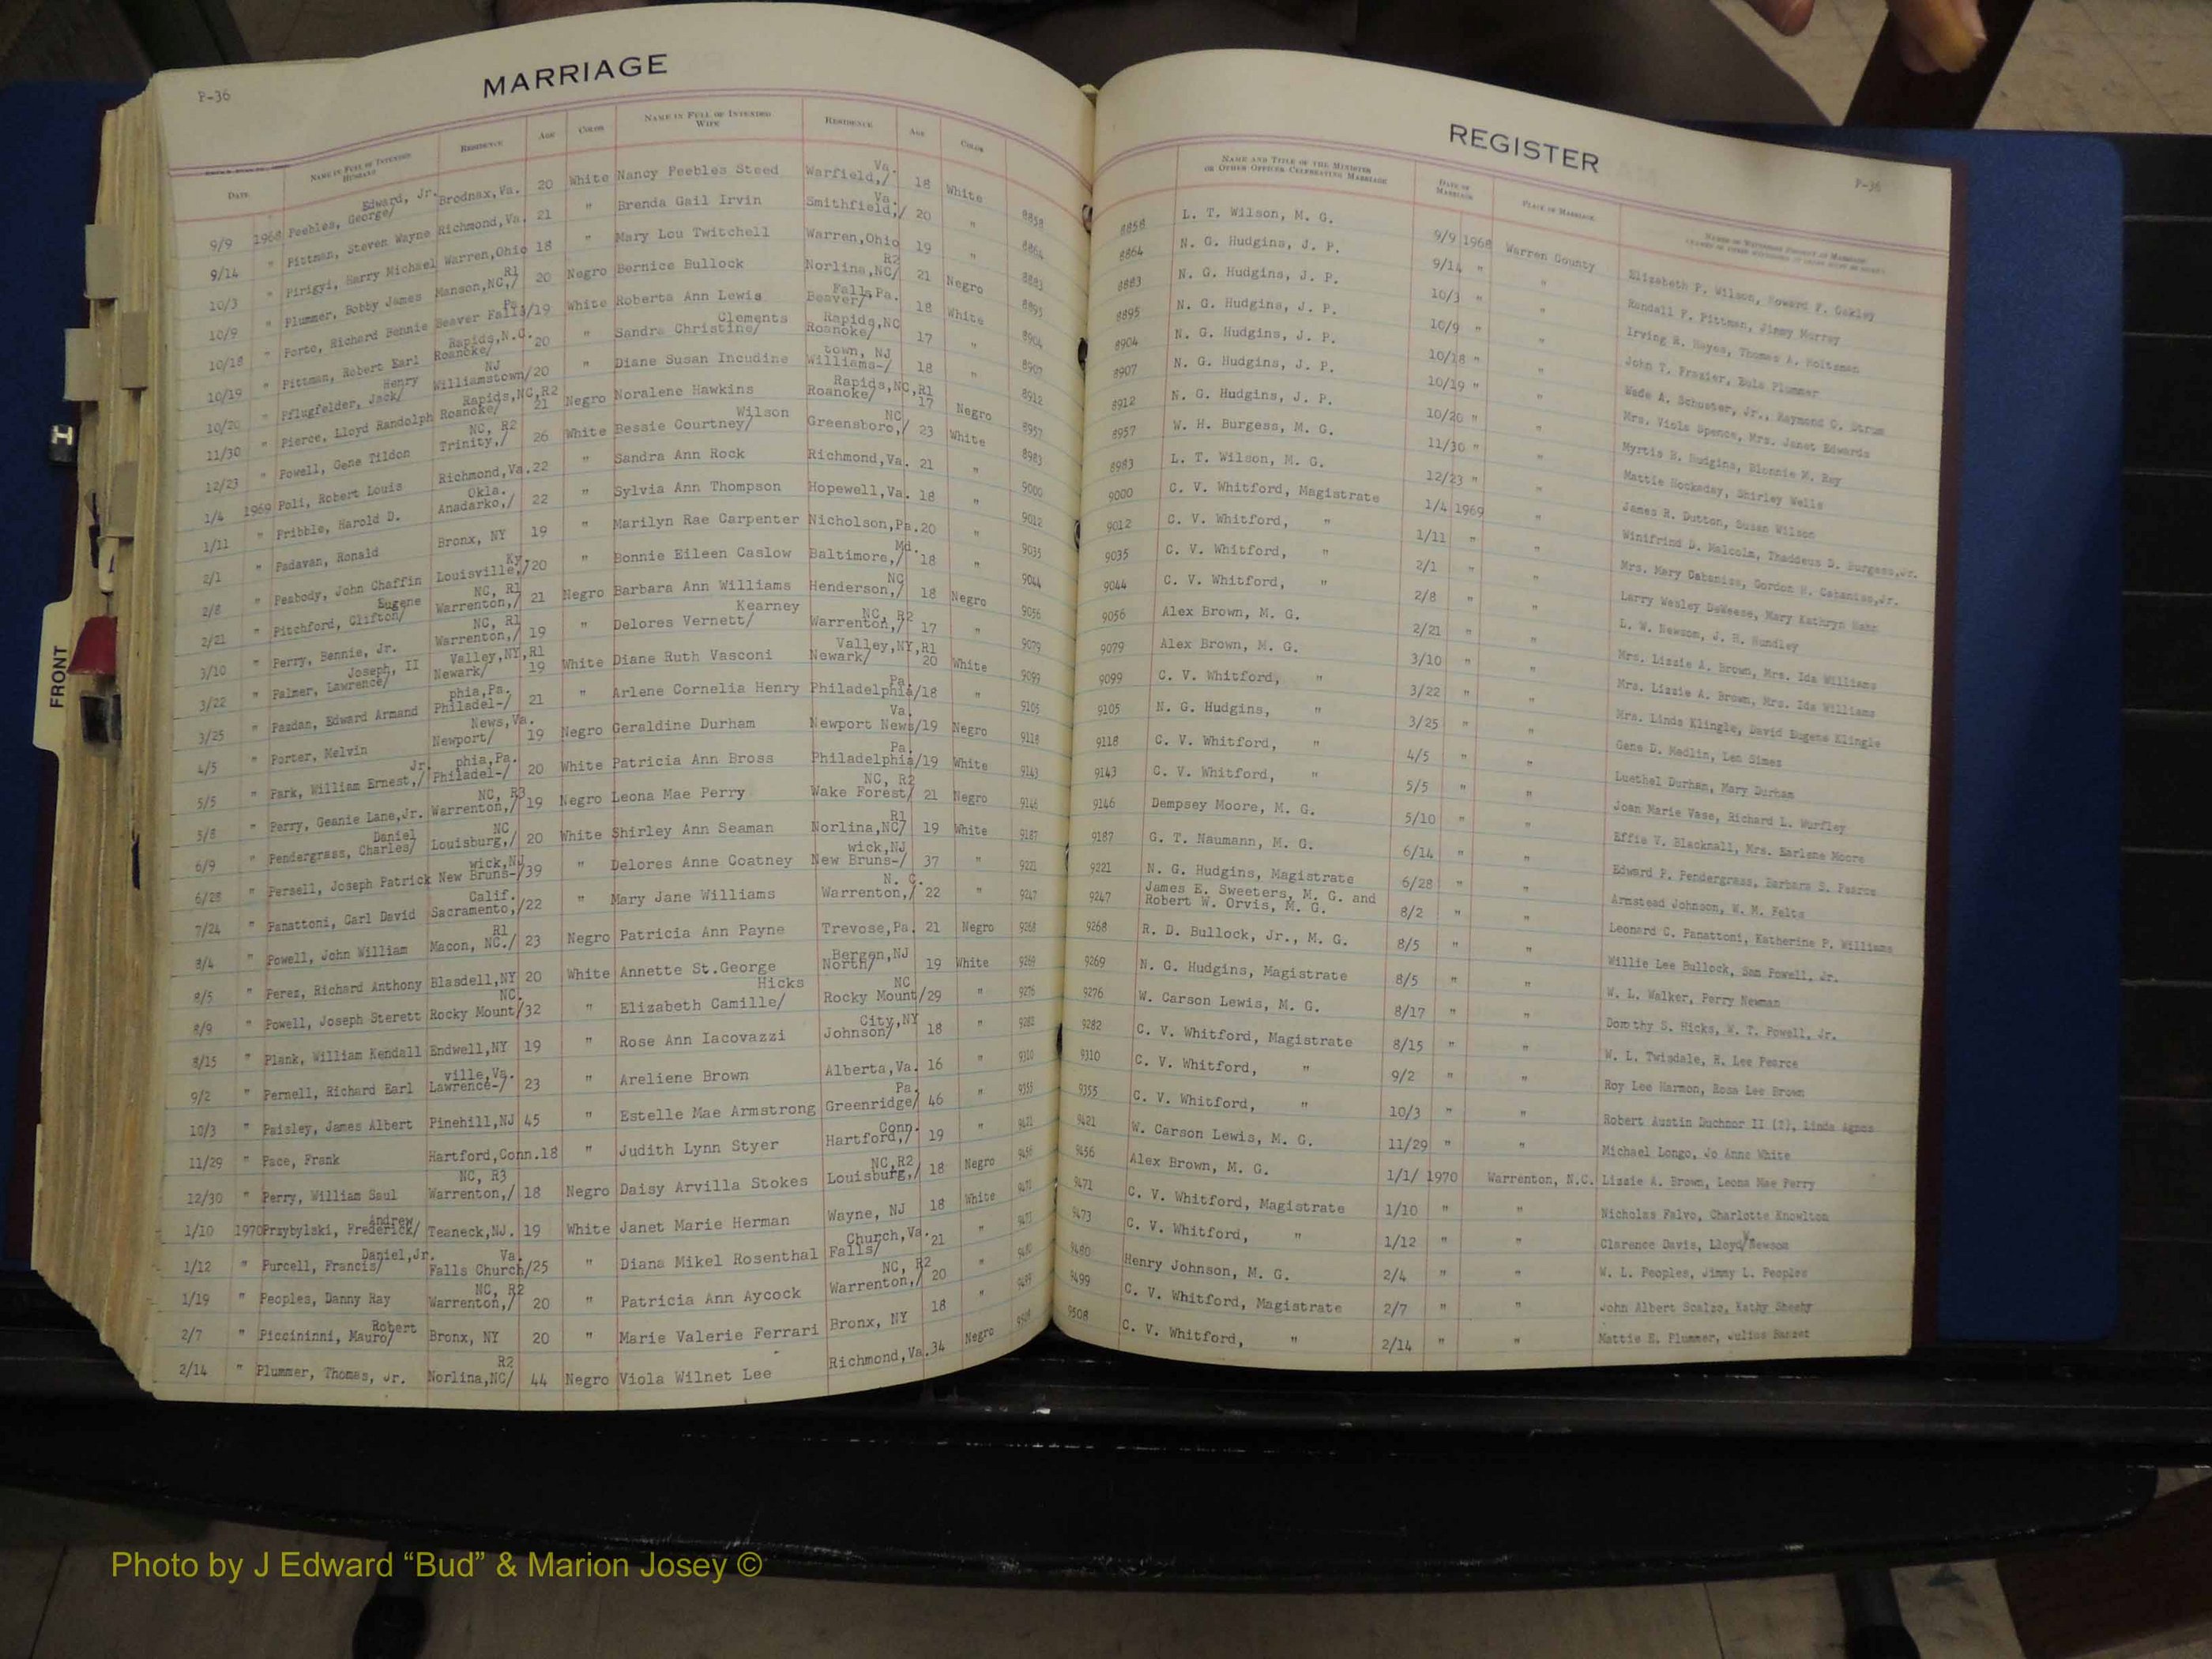 P-36
MARRIAGE
DATE NAME IN FULL OF INTENDED HUSBAND RESIDENCE AGE COLOR NAME IN FULL OF INTENDED WIFE RESIDENCE AGE COLOR
9/9 1968 Peebles, George/ Edward, Jr. Brodnax, Va. 20 White Nancy Peebles Steed Warfield,/ Va. 18 White 8858
9/14 " Pittman, Steven Wayne Richmond, Va. 21 " Brenda Gail Irvin Smithfield,/ Va. 20 " 8864
10/3 " Pirigyi, Harry Michael Warren, Ohio 18 " Mary Lou Twitchell Warren, Ohio 19 " 8883
10/9 " Plummer, Bobby James Manson, NC,/ R1 20 Negro Bernice Bullock Norlina, NC/ R2 21 Negro 8895
10/18 " Porto, Richard Bennie Beaver Falls/ Pa. 19 White Roberta Ann Lewis Beaver/ Falls, Pa. 18 White 8904
10/19 " Pittman, Robert Earl Roanoke/ Rapids, N.C. 20 " Sandra Christine/ Clements Roanoke/ Rapids, NC 17 " 8907
10/20 " Pflugfelder, Jack/ Henry Williamstown/ NJ 20 " Diane Susan Incudine Williams-/ town, NJ 18 " 8912
11/30 " Pierce, Lloyd Randolph Roanoke/ Rapids, NC, R2 21 Negro Noralene Hawkins Roanoke/ Rapids, NC, R1 17 Negro 8957
12/23 " Powell, Gene Tildon Trinity,/ NC, R2 26 White Bessie Courtney/ Wilson Greensboro,/ NC 23 White 8983
1/4 1969 Poli, Robert Louis Richmond, Va. 22 " Sandra Ann Rock Richmond, Va. 21 " 9000
1/11 " Pribble, Harold D. Anadarko,/ Okla. 22 " Sylvia Ann Thompson Hopewell, Va. 18 " 9012
2/1 " Padavan, Ronald Bronx, NY 19 " Marilyn Rae Carpenter Nicholson, Pa. 20 " 9035
2/8 " Peabody, John Chaffin Louisville,/ Ky. 20 " Bonnie Eileen Caslow Baltimore,/ Md. 18 " 9044
2/21 " Pitchford, Clifton/ Eugene Warrenton,/ NC, R1 21 Negro Barbara Ann Williams Henderson,/ NC 18 Negro 9056
3/10 " Perry, Bennie, Jr. Warrenton,/ NC, R1 19 " Delores Vernett/ Kearney Warrenton,/ NC, R2 17 " 9079
3/22 " Palmer, Lawrence/ Joseph, II Newark/ Valley, NY, R1 19 White Diane Ruth Vasconi Newark/ Valley, NY, R1 20 White 9099
3/25 " Pazdan, Edward Armand Philadel-/ phia, Pa. 21 " Arlene Cornelia Henry Philadelphia/ Pa. 18 " 9105
4/5 " Porter, Melvin Newport/ News, Va. 19 Negro Geraldine Durham Newport News/ Va. 19 Negro 9118
5/5 " Park, William Ernest,/ Jr. Philadel-/ phia, Pa. 20 White Patricia Ann Bross Philadelphia/ Pa. 19 White 9143
5/8 " Perry, Geanie Lane, Jr. Warrenton,/ NC, R3 19 Negro Leona Mae Perry Wake Forest/ NC, R2 21 Negro 9146
6/9 " Pendergrass, Charles/ Daniel Louisburg,/ NC 20 White Shirley Ann Seaman Norlina, NC/ R1 19 White 9187
6/28 " Persell, Joseph Patrick New Bruns-/ wick, NJ 39 " Delores Anne Coatney New Bruns-/ wick, NJ 37 " 9221
7/24 " Panattoni, Carl David Sacramento,/ Calif. 22 " Mary Jane Williams Warrenton,/ N. C. 22 " 9247
8/4 " Powell, John William Macon, NC./ R1 23 Negro Patricia Ann Payne Trevose, Pa. 21 Negro 9268
8/5 " Perez, Richard Anthony Blasdell, NY 20 White Annette St.George North/ Bergen, NJ 19 White 9269
8/9 " Powell, Joseph Sterett Rocky Mount/ NC. 32 " Elizabeth Camille/ Hicks Rocky Mount/ NC 29 " 9276
8/15 " Plank, William Kendall Endwell, NY 19 " Rose Ann Iacovazzi Johnson/ City, NY 18 " 9282
9/2 " Pernell, Richard Earl Lawrence-/ ville, Va. 23 " Areliene Brown Alberta, Va. 16 " 9310
10/3 " Paisley, James Albert Pinehill, NJ 45 " Estelle Mae Armstrong Greenridge/ Pa. 46 " 9355
11/29 " Pace, Frank Hartford, Conn. 18 " Judith Lynn Styer Hartford,/ Conn. 19 " 9421
12/30 " Perry, William Saul Warrenton,/ NC, R3 18 Negro Daisy Arvilla Stokes Louisburg,/ NC, R2 18 Negro 9456
1/10 1970 Przybylski, Frederick/ Andrew Teaneck, NJ. 19 White Janet Marie Herman Wayne, NJ 18 White 9471
1/12 " Purcell, Francis/ Daniel, Jr. Falls Church/ Va. 25 " Diana Mikel Rosenthal Falls/ Church, Va. 21 " 9473
1/19 " Peoples, Danny Ray Warrenton,/ NC, R2 20 " Patricia Ann Aycock Warrenton,/ NC, R2 20 " 9480
2/7 " Piccininni, Mauro/ Robert Bronx, NY 20 " Marie Valerie Ferrari Bronx, NY 18 " 9499
2/14 " Plummer, Thomas, Jr. Norlina, NC/ R2 44 Negro Viola Wilnet Lee Richmond, Va. 34 Negro 9508
REGISTER
P-36
NAME AND TITLE OF THE MINISTER OR OTHER OFFICER CELEBRATING MARRIAGE DATE OF MARRIAGE PLACE OF MARRIAGE
8858 L. T. Wilson, M. G. 9/9 1968 Warren County Elizabeth P. Wilson, Howard F. Oakley
8864 N. G. Hudgins, J. P. 9/14 " " Randall F. Pittman, Jimmy Murray
8883 N. G. Hudgins, J. P. 10/3 " " Irving R. Hayes, Thomas A. Holtzman
8895 N. G. Hudgins, J. P. 10/9 " " John T. Frazier, Eula Plummer
8904 N. G. Hudgins, J. P. 10/18 " " Wade A. Schuster, Jr., Raymond O. Strum
8907 N. G. Hudgins, J. P. 10/19 " " Mrs. Viola Spence, Mrs. Janet Edwards
8912 N. G. Hudgins, J. P. 10/20 " " Myrtis B. Hudgins, Blonnie M. Ray
8957 W. H. Burgess, M. G. 11/30 " " Mattie Hockaday, Shirley Wells
8983 L. T. Wilson, M. G. 12/23 " " James R. Dutton, Susan Wilson
9000 C. V. Whitford, Magistrate 1/4 1969 " Winifrind D. Malcolm, Thaddeus D. Burgess, Jr.
9012 C. V. Whitford, " 1/11 " " Mrs. Mary Cabaniss, Gordon H. Cabaniss, Jr.
9035 C. V. Whitford, " 2/1 " " Larry Wesley DeWeese, Mary Kathryn Hahn
9044 C. V. Whitford, " 2/8 " " L. W. Newsom, J. H. Hundley
9056 Alex Brown, M. G. 2/21 " " Mrs. Lizzie A. Brown, Mrs. Ida Williams
9079 Alex Brown, M. G. 3/10 " " Mrs. Lizzie A. Brown, Mrs. Ida Williams
9099 C. V. Whitford, " 3/22 " " Mrs. Linda Klingle, David Eugene Klingle
9105 N. G. Hudgins, " 3/25 " " Gene D. Medlin, Len Simes
9118 C. V. Whitford, " 4/5 " " Luethel Durham, Mary Durham
9143 C. V. Whitford, " 5/5 " " Joan Marie Vase, Richard L. Wurfley
9146 Dempsey Moore, M. G. 5/10 " " Effie V. Blacknall, Mrs. Earlene Moore
9187 G. T. Naumann, M. G. 6/14 " " Edward P. Pendergrass, Barbara S. Pearce
9221 N. G. Hudgins, Magistrate 6/28 " " Armstead Johnson, W. M. Felts
9247 James E. Sweeters, M. G. and Robert W. Orvis, M. G. 8/2 " " Leonard C. Panattoni, Katherine P. Williams
9268 R. D. Bullock, Jr., M. G. 8/5 " " Willie Lee Bullock, Sam Powell, Jr.
9269 N. G. Hudgins, Magistrate 8/5 " " W. L. Walker, Perry Newman
9276 W. Carson Lewis, M. G. 8/17 " " Dorothy S. Hicks, W. T. Powell, Jr.
9282 C. V. Whitford, Magistrate 8/15 " " W. L. Twisdale, R. Lee Pearce
9310 C. V. Whitford, " 9/2 " " Roy Lee Harmon, Rosa Lee Brown
9355 C. V. Whitford, " 10/3 " " Robert Austin Duchnor II (?), Linda Agnos
9421 W. Carson Lewis, M. G. 11/29 " " Michael Longo, Jo Anne White
9456 Alex Brown, M. G. 1/1/ 1970 Warrenton, N.C. Lizzie A. Brown, Leona Mae Perry
9471 C. V. Whitford, Magistrate 1/10 " " Nicholas Falvo, Charlotte Knowlton
9473 C. V. Whitford, " 1/12 " " Clarence Davis, Lloyd Newsom
9480 Henry Johnson, M. G. 2/4 " " W. L. Peoples, Jimmy L. Peoples
9499 C. V. Whitford, Magistrate 2/7 " " John Albert Scalzo, Kathy Sheehy
9508 C. V. Whitford, " 2/14 " " Mattie E. Plummer, Julius Basset
FRONT
Photo by J Edward “Bud” & Marion Josey ©